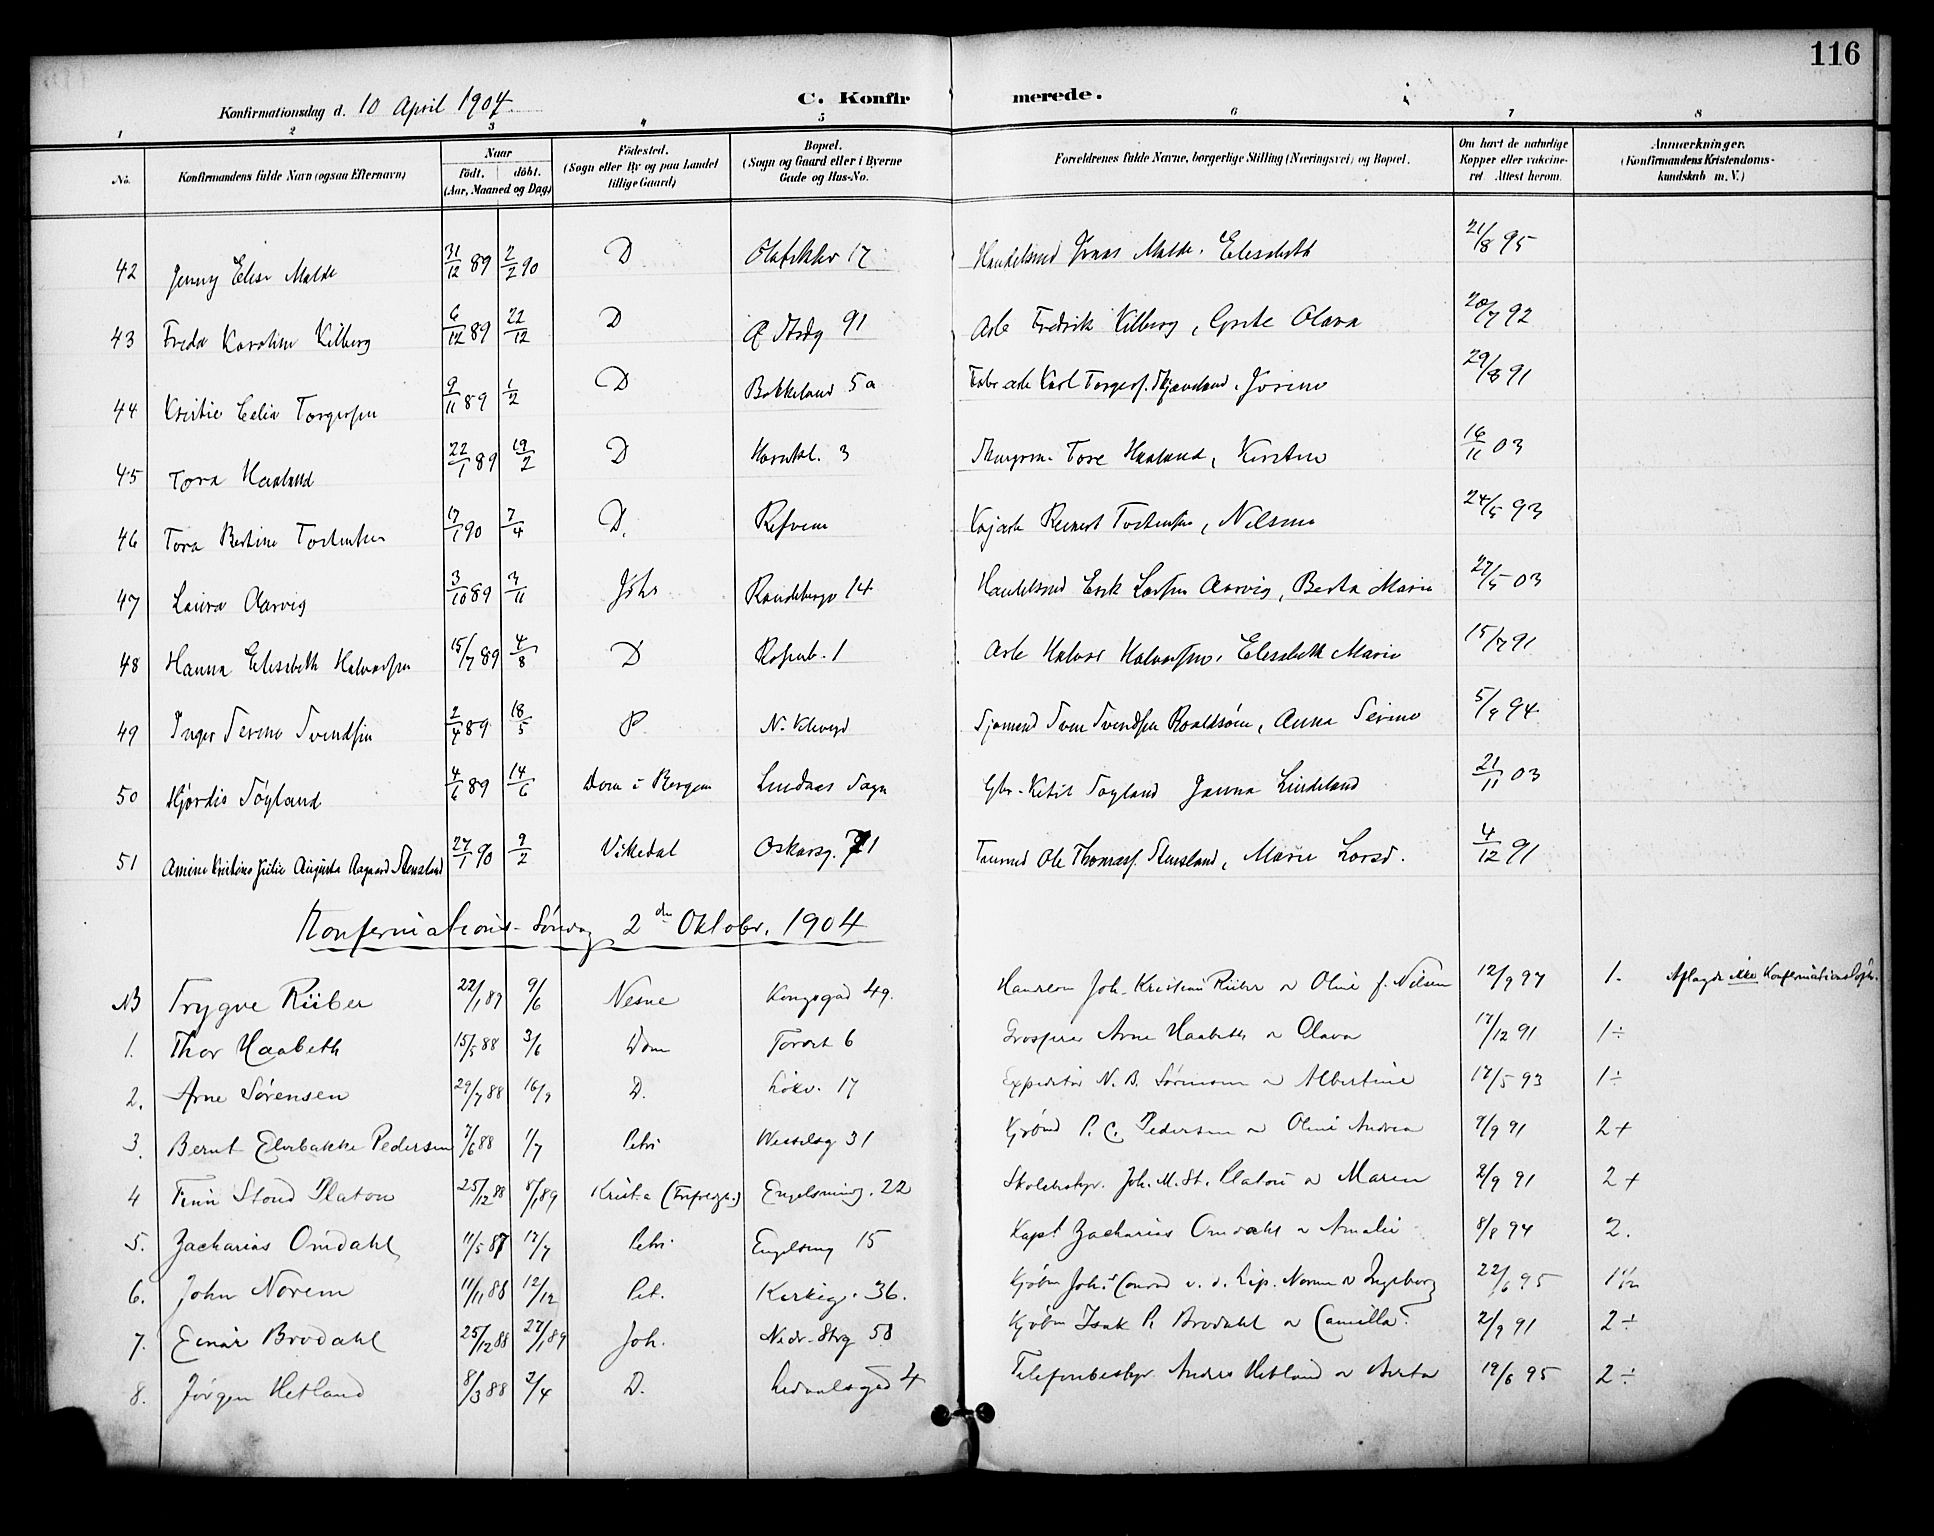 116
Konfirmationsdag d. 10 April 1904.
C. Konfirmerede.
1 2 3 4 5 6 7 8
No. Konfirmandens fulde Navn (ogsaa Efternavn) Naar født. døbt. (Aar, Maaned og Dag) Fødested. (Sogn eller By og paa Landet tillige Gaard) Bopæl. (Sogn og Gaard eller i Byerne Gade og Hus-No. Forældrenes fulde Navne, borgerlige Stilling (Næringsvei) og Bopæl. Om havt de naturlige Kopper eller vaksineret. Attest herom. Anmærkninger. (Konfirmandens Kristendomskundskab m. V.)
42 Jenny Elise Malde 31/12 89 2/2 90 D 17 Handelsmd Jonas Malde. Elisabeth 21/8 95
43 Freda Karoline Kilberg 6/12 89 22/12 D 91 Arb Fredrik Kilberg, Grete Olava 20/7 92
44 Celia Torgersen 9/11 89 1/2 D Bakkeland 5a Karl Torgers. 29/8 91
45 Tora Haaland 22/1 89 19/2 D 3 Tore Haaland, Kirstine 16/11 03
46 Tora Bertine 17/1 90 7/4 D. Nilsine 24/5 93
47 Laura Aarvig 3/10 89 3/11 Joh. Randebergv 14 Handelsmd Erik Larsen Aarvig, Berta Marie 27/5 03
48 Hanna Elisabeth Halvorsen 15/7 89 4/8 D Rosenb. 1 Arb Halvor Halvorsen. Elisabeth Marie 15/7 91
49 Inger Serine Svendsen 2/4 89 18/5 P. Sjømand Sven Svendsen Anna Serine 5/9 94
50 Hjørdis Søyland 4/6 89 14/6 Dom i Bergen Lindaas Sogn Ketil Søyland Janna Lindeland 21/11 03
51 Amine Kristine Julie Augusta Aagaard Stensland 27/1 90 9/2 Vikedal Oskarsg. 71 Ole Thomass. Stensland, Marie Larsd. 4/12 91
Konfirmations-Søndag 2den Oktobr. 1904
NB Trygve Rüber 22/1 89 9/6 Nesne Kongsgad 49. Joh. Kristian Rüber og Oline f. Nilsen 12/9 97 1. Aflagde ikke Konfirmationsløfte.
1. Thor Haabeth 15/5 88 3/6 Dom Torvet 6 Arne Haabeth og Olava 17/12 91 1÷
2. Arne Sørensen 29/7 88 16/9 D. Løkv. 17 Expeditør N. B. Sørensen og Albertine 17/5 93 1÷
3. Bernt Elvebakke Pedersen 7/6 88 1/7 Petri Wesselsg 31 Kjøbmd P. C. Pedersen og Oline Andrea 9/9 91 2+
4 Finn Stoud Platou 25/12 88 8/1 89 Krist.a Engelsming. 22 Skolebestyr. Joh. M. St. Platou og Maren 2/9 91 2+
5. Zacharias Omdahl 11/5 87 17/7 Petri Engelsmg 15 Kapt Zacharias Omdahl og Amalie 8/8 94 2.
6. John Norem 11/11 88 12/12 Pet. Kirkeg. 36. Norem og Ingeborg 22/6 95
7. Einar Brodahl 25/12 88 27/1 89 Joh. Nedr. Strg 58 Kjøbm Isak P. Brodahl og Camilla 2/9 91 2÷
8. Jørgen Hetland 8/3 88 2/4 D. Ledaalsgad 4 Telefonbestyr Anders Hetland og Berta 19/6 95 2÷